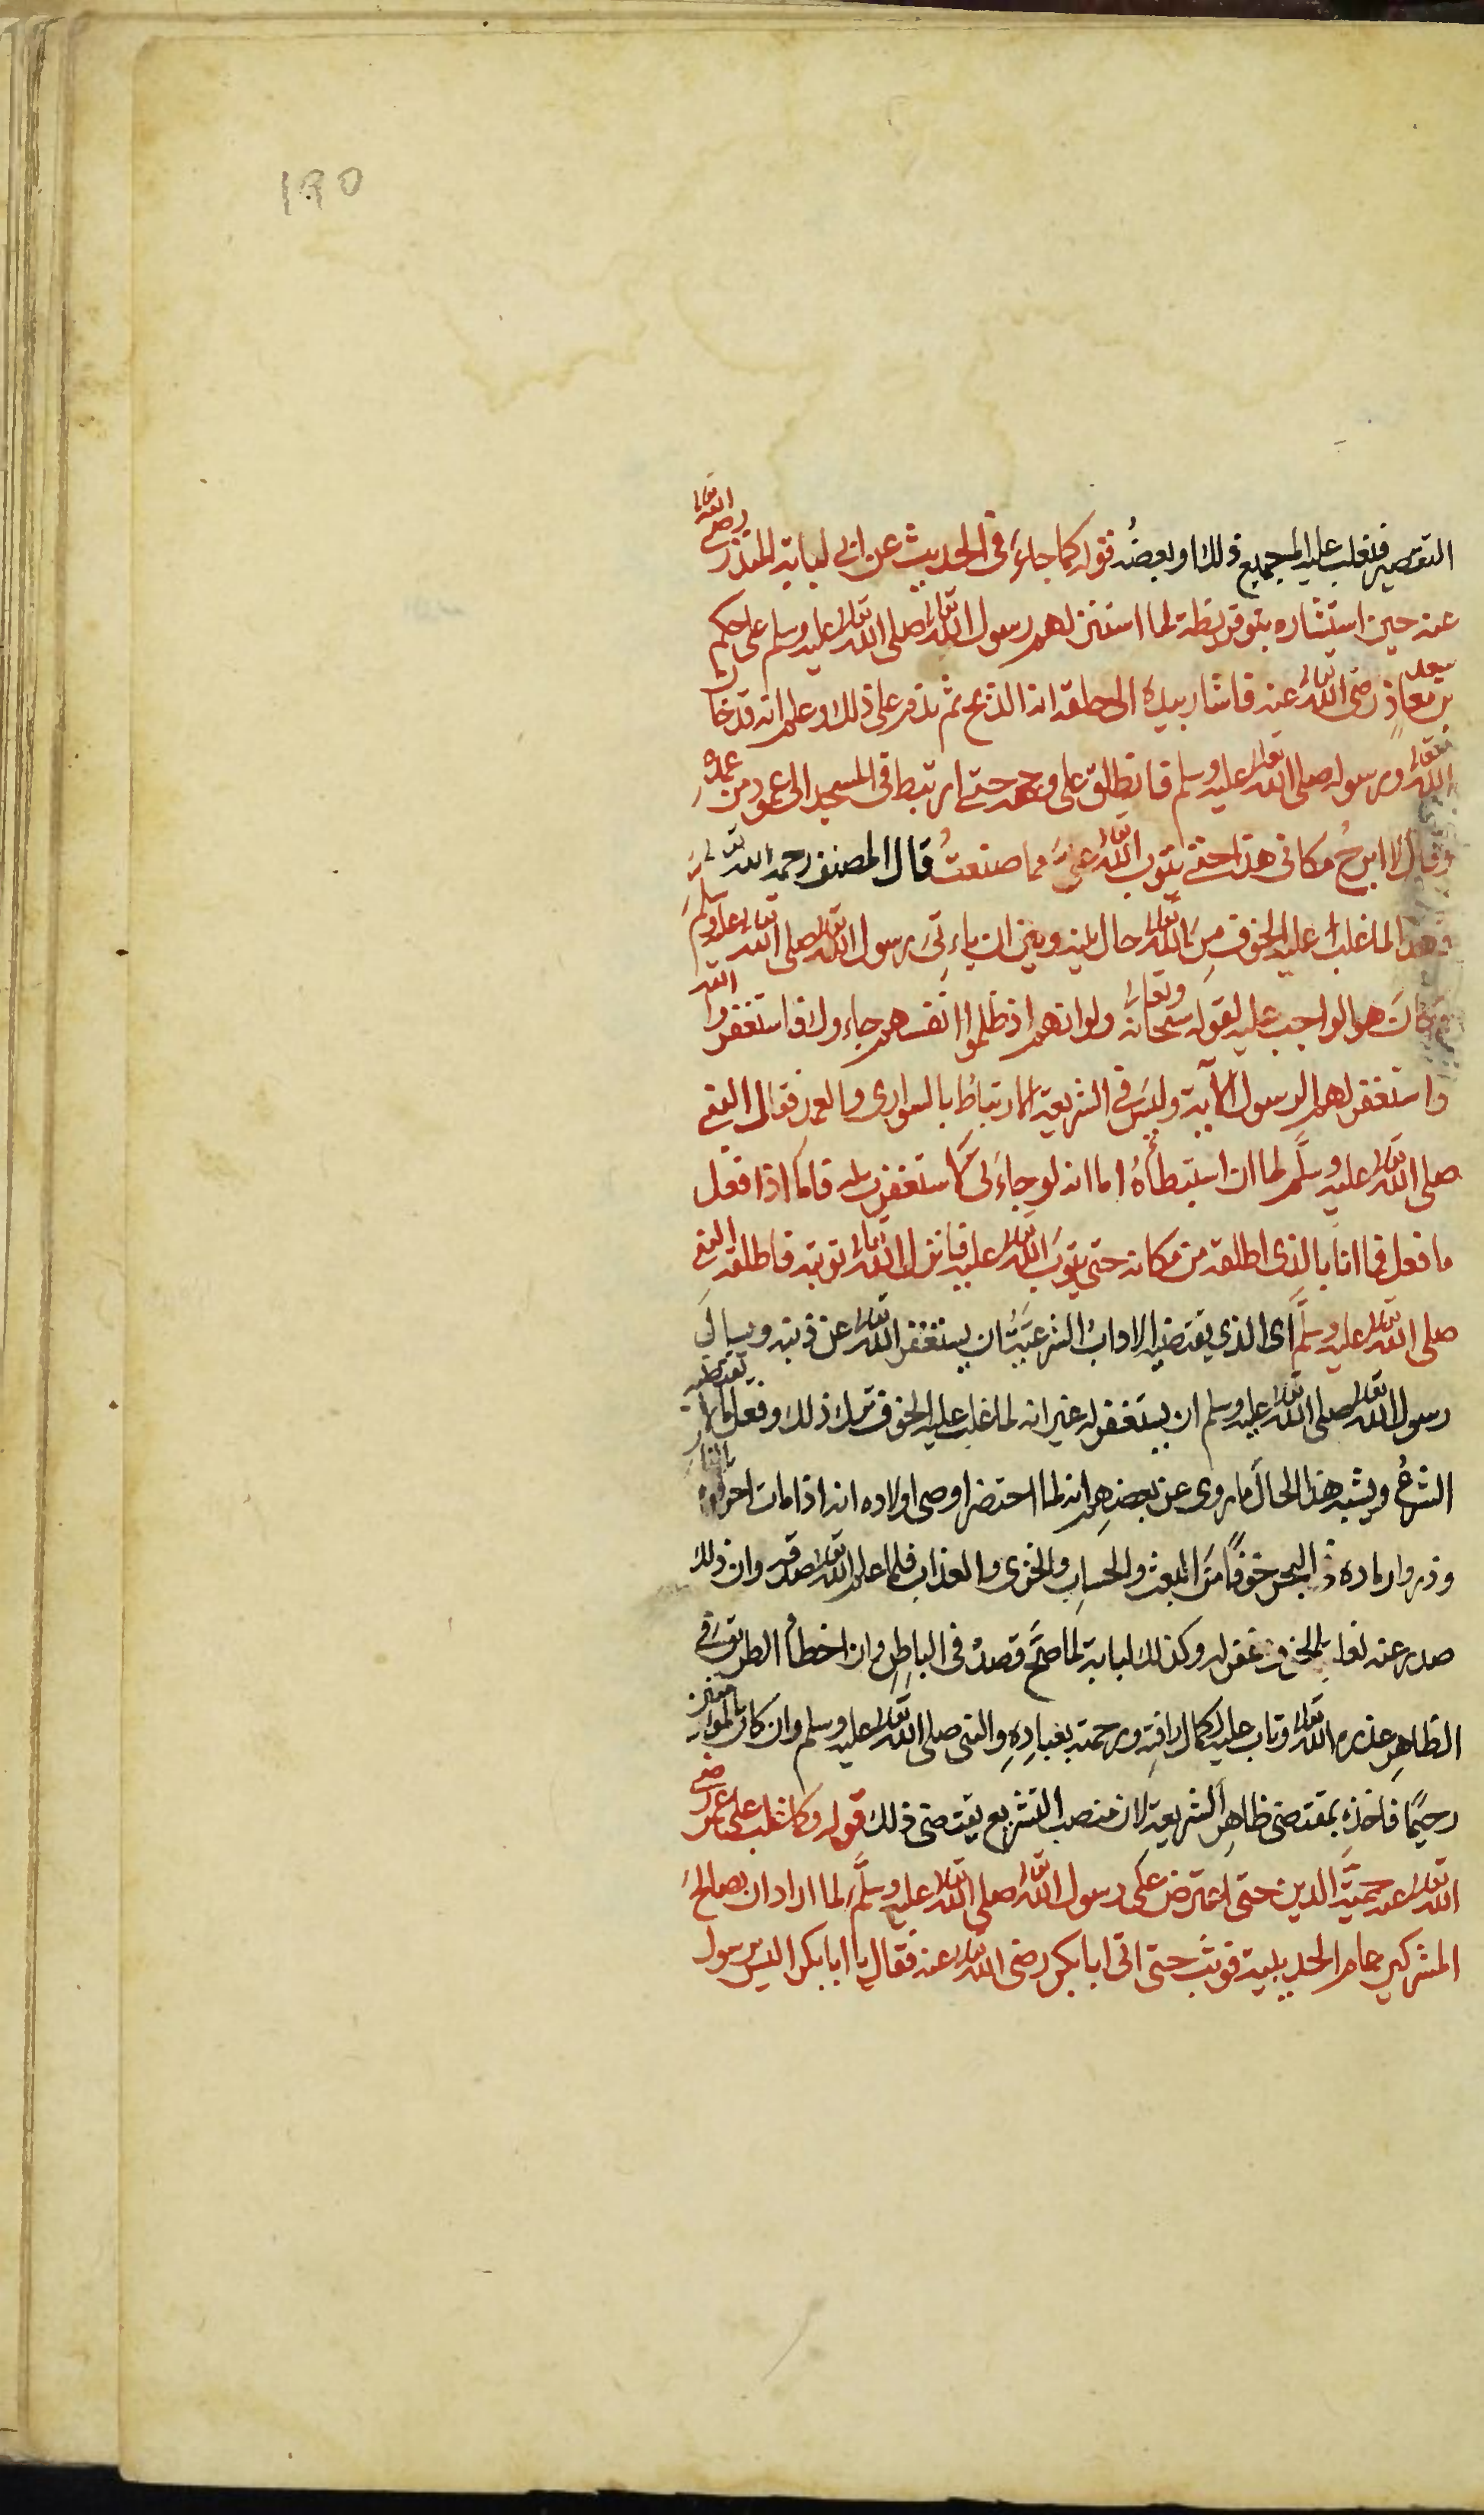 ١٩٥
التقصير فتغلب عليه لجميع ذلك او بعضه قوله كما جاء في الحديث عن ابى لبابة المنذر رضى الله تعالى
عنه حين استشاره بنو قريظة لما استنزلهم رسول الله تعالى صلى الله تعالى عليه وسلم على حكم
سعد بن معاذ رضى الله تعالى عنه فاشار بيده الى حلقه انه الذبح ثم ندم على ذلك وعلم انه قد خان
الله تعالى ورسوله صلى الله تعالى عليه وسلم فانطلق على وجهه حتى ارتبط فى المسجد الى عمود من عمده
وقال لا ابرح مكانى هذا حتى يتوب الله تعالى على مما صنعت قال المصنف رحمه الله تعالى
فهذا لما غلب عليه الخوف من الله تعالى حال بينه وبين ان ياءتى رسول الله تعالى صلى الله تعالى عليه وسلم
وكان هو الواجب عليه لقوله سبحانه وتعالى ولو انهم اذ ظلموا انفسهم جاءوك فاستغفروا الله
واستغفر لهم الرسول الآية وليس فى الشريعة الارتباط بالسوارى والعمد فقال النبى
صلى الله تعالى عليه وسلم لما ان استبطأه اما انه لو جاءنى لاستغفرت له فاما اذا فعل
ما فعل فما انا بالذى اطلقه من مكانه حتى يتوب الله تعالى عليه فانزل الله تعالى توبته فاطلقه النبى
صلى الله تعالى عليه وسلم اى الذي يقتضيه الاداب الشرعية ان يستغفر الله تعالى عن ذنبه ويسال
رسول الله تعالى صلى الله تعالى عليه وسلم ان يستغفر له غير انه لما غلب عليه الخوف ترك ذلك وفعل مالا يقتضيه
الشرع ويشبه هذا الحال ما روى عن بعضهم انه لما احتضر اوصى اولاده انه اذا مات احرقوه بالنار
وذروا رماده فى البحر خوفا من البعث والحساب والخزى والعذاب فلما علم الله تعالى صدقه وان ذلك
صدر عنه لغلبة الخوف غفر له وكذلك لبابة لما صح قصده فى الباطن وان اخطأ الطريق فى
الظاهر عذره الله تعالى وتاب عليه لكمال رافته ورحمته بعباده والنبى صلى الله تعالى عليه وسلم وان كان بالمؤمنين
رحيما فاخذه بمقتضى ظاهر الشريعة لان منصب التشريع يقتضى ذلك قوله وكما غلب على عمر رضى
الله تعالى عنه حمية الدين حتى اعترض على رسول الله تعالى صلى الله تعالى عليه وسلم لما اراد ان يصالح
المشركين عام الحديبية فوثب حتى اتى ابا بكر رضى الله تعالى عنه فقال يا ابا بكر اليس رسول